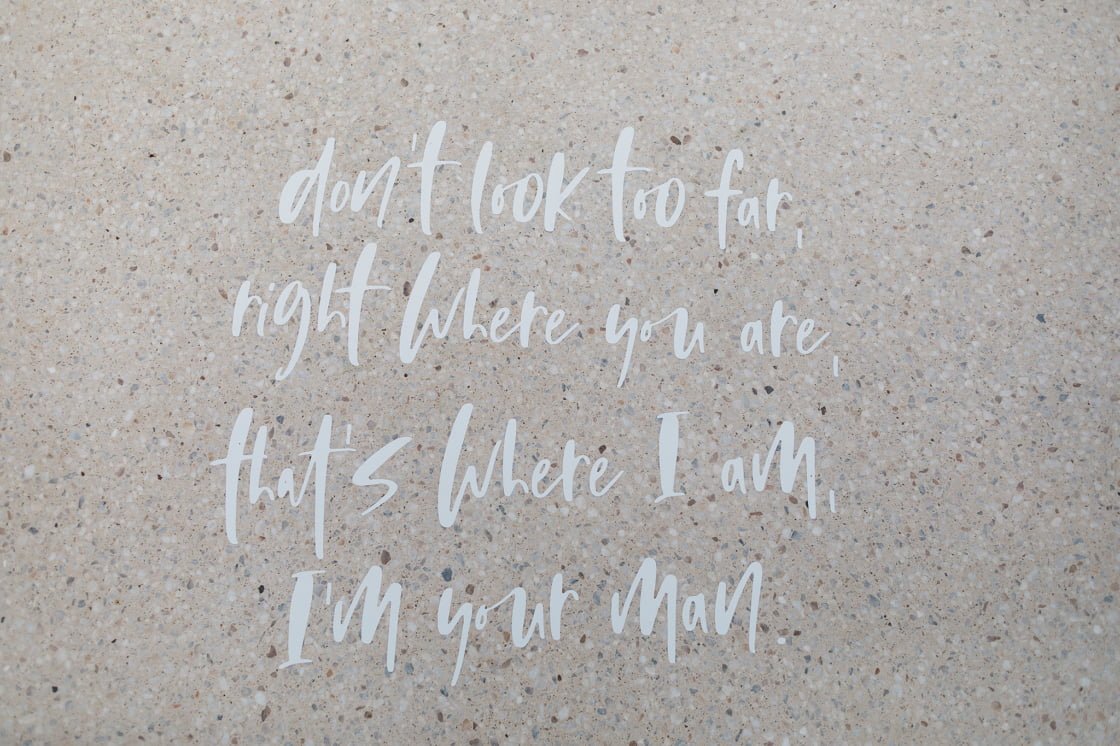 don't look too far,
right where you are,
that's where I am,
I'm your man.